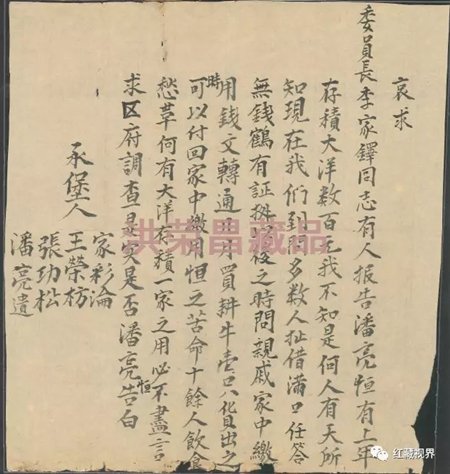 哀求
委員長李家鐸同志有人报告潘亮恒有上年
存積大洋数百元我不知是何人有天所
知現在我们到問多数人扯借滿口任答
無錢鶴有証据家後之時問親戚家中繳
用錢文轉通四月買耕牛壹口八化日出之
時可以付回家中繳用恒之苦命十餘人飲食
愁草何有大洋存積一家之用必不盡言
求区府調查是实是否潘亮恒告白
承堡人
家彩淪
王榮枋
張功松
潘亮遺
洪荣昌藏品
红藏视界